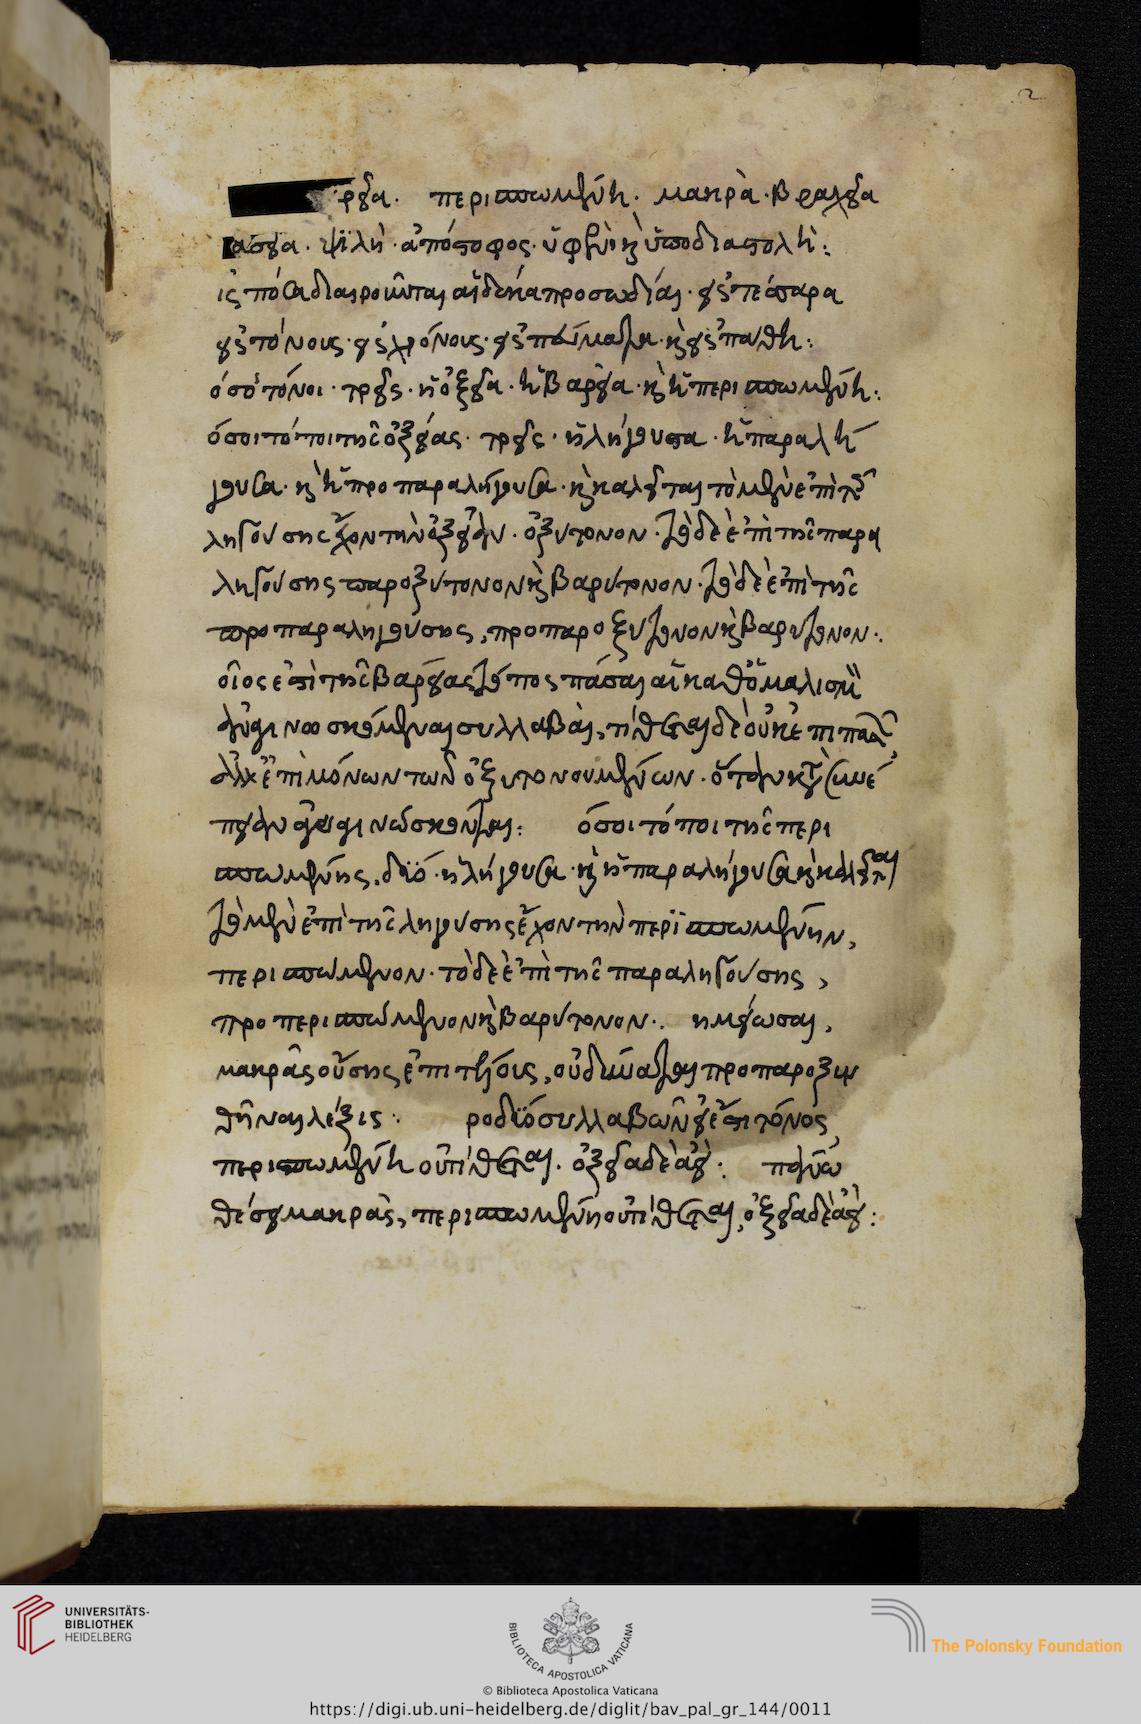 2
ρεῖα. περισπωμένη. μακρὰ. βραχεῖα
δασεῖα. ψϊλὴ. ἀπόστροφος. ὑφὲν καὶ ὑποδιαστολὴ:
εἰς πόσα διαιροῦνται αἱ δέκα προσωδίαι. εἰς τέσσαρα
εἰς τόνους. εἰς χρόνους. εἰς πνεύματα. καὶ εἰς πάθη:
πόσοι τόνοι. τρεῖς. ἡ ὀξεῖα. ἡ βαρεῖα. καὶ ἡ περισπωμένη:
πόσοι τόποι τῆς ὀξείας. τρεῖς. ἡ λήγουσα. ἡ παραλή
γουσα. καὶ ἡ προπαραλήγουσα. καὶ καλεῖται τὸ μὲν ἐπὶ τῆς
ληγούσης ἔχον τὴν ὀξεῖαν. ὀξύτονον. τὸ δὲ ἐπὶ τῆς παρα
ληγούσης παροξύτονον καὶ βαρύτονον. τὸ δὲ ἐπὶ τῆς
προπαραληγούσης, προπαροξύτονον καὶ βαρύτονον.
ἐπὶ τῆς βαρείας τόπος πᾶσαι αἱ καθομαλισμὸν
ἀναγινωσκόμεναι συλλαβαὶ, τίθεται δὲ οὐκ ἐπὶ πασῶν
ἀλλ' ἐπὶ μόνων τῶν ὀξυτονουμένων. ὅταν κατὰ συνέ
πειαν ἀναγινώσκονται: πόσοι τόποι τῆς περι
σπωμένης, δύο. ἡ λήγουσα. καὶ ἡ παραλήγουσα καὶ καλεῖται
τὸ μὲν ἐπὶ τῆς ληγούσης ἔχον τὴν περϊσπωμένην,
περισπώμενον. τὸ δὲ ἐπὶ τῆς παραληγούσης,
προπερισπώμενον καὶ βαρύτονον.
μακρᾶς οὔσης ἐπὶ τέλους, οὐ δύναται προπαροξυν
θῆναι λέξις: πρὸ δύο συλλαβῶν
περισπωμένη οὐ τίθεται. ὀξεῖα δὲ ἀεί:
θέσει μακρᾶς, περισπωμένη οὐ τίθεται, ὀξεῖα δὲ ἀεί:
UNIVERSITÄTS-
BIBLIOTHEK
HEIDELBERG
BIBLIOTECA APOSTOLICA VATICANA
The Polonsky Foundation
© Biblioteca Apostolica Vaticana
https://digi.ub.uni-heidelberg.de/diglit/bav_pal_gr_144/0011